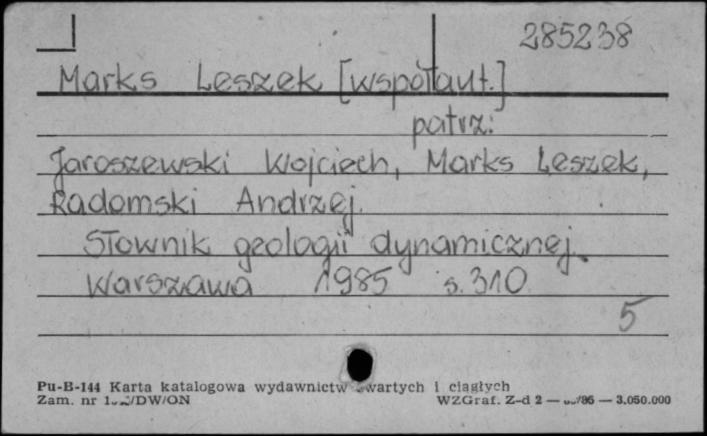 285238
Marks Leszek [współaut.]
patrz:
Jaroszewski Wojciech, Marks Leszek,
Radomski Andrzej.
Słownik geologii dynamicznej.
Warszawa 1985 s. 310
5
Pu-B-144 Karta katalogowa wydawnictw zwartych i ciągłych
Zam. nr /DW/ON WZGraf. Z-d 2 — /86 — 3.050.000